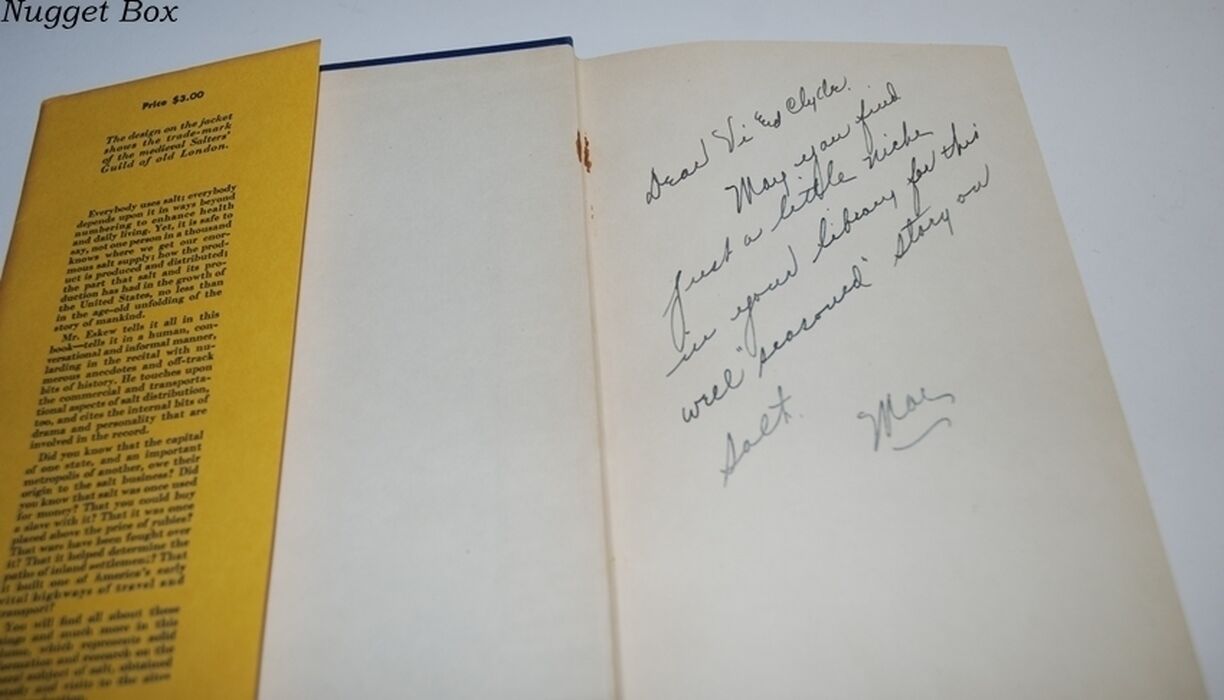 Nugget Box
Price $3.00
The design on the jacket
shows the trade-mark
of the medieval Salters'
Guild of old London.
Everybody uses salt; everybody
depends upon it in ways beyond
numbering to enhance health
and daily living. Yet, it is safe to
say, not one person in a thousand
knows where we get our enor-
mous salt supply; how the prod-
uct is produced and distributed;
the part that salt and its pro-
duction has had in the growth of
the United States, no less than
in the age-old unfolding of the
story of mankind.
Mr. Eskew tells it all in this
book—tells it in a human, con-
versational and informal manner,
larding in the recital with nu-
merous anecdotes and off-track
bits of history. He touches upon
the commercial and transporta-
tional aspects of salt distribution,
too, and cites the internal bits of
drama and personality that are
involved in the record.
Did you know that the capital
of one state, and an important
metropolis of another, owe their
origin to the salt business? Did
you know that salt was once used
for money? That you could buy
a slave with it? That it was once
placed above the price of rubies?
That wars have been fought over
it? That it helped determine the
paths of inland settlement? That
it built one of America's early
vital highways of travel and
transport?
You will find all about these
and much more in this
which represents solid
and research on the
subject of salt, obtained
and visits to the
Dear Vi and Clyde.
May you find
just a little niche
in your library for this
well "seasoned" story on
Salt.
Mae